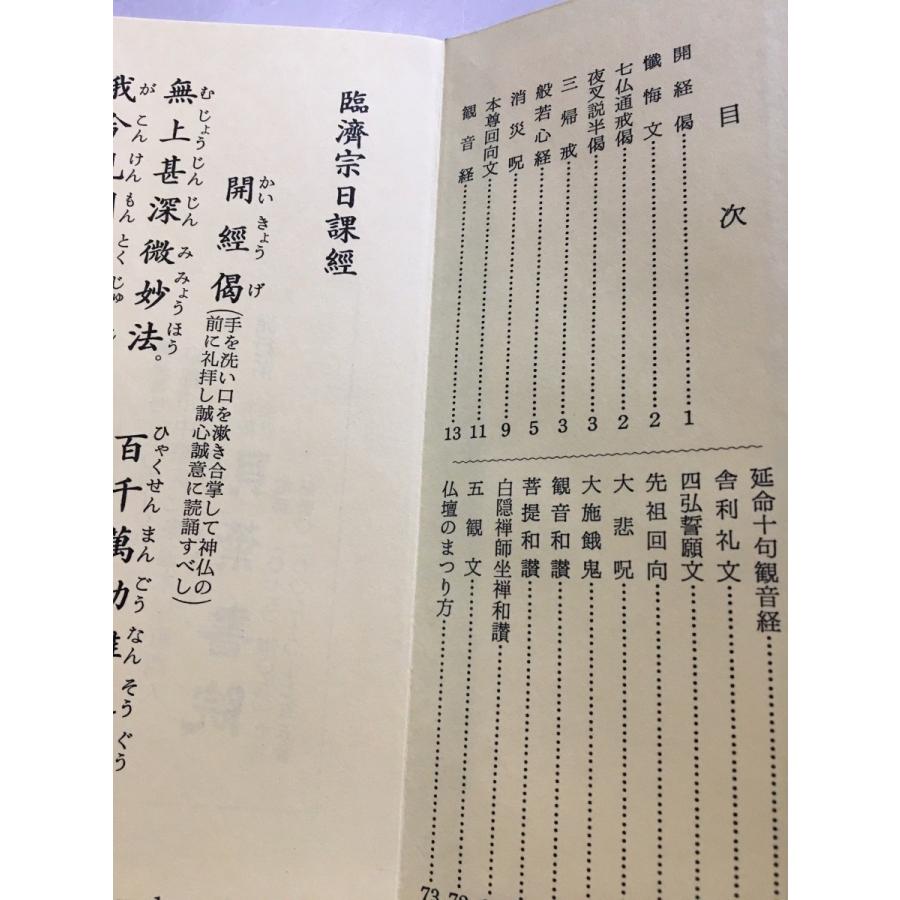 目次
開経偈 1
懺悔文 2
七仏通戒偈 2
夜叉説半偈 3
三帰戒 3
般若心経 5
消災呪 9
本尊回向文 11
観音経 13
延命十句観音経
舎利礼文
四弘誓願文
先祖回向
大悲呪
大施餓鬼
観音和讃
菩提和讃
白隠禅師坐禅和讃
五観文
仏壇のまつり方 73
臨濟宗日課經
開經偈 (手を洗い口を漱き合掌して神仏の
前に礼拝し誠心誠意に読誦すべし)
かいきょうげ
無上甚深微妙法。百千萬劫難
むじょうじんじんみみょうほう ひゃくせんまんごうなんそうぐう
我今見聞
がこんけんもんとくじゅ